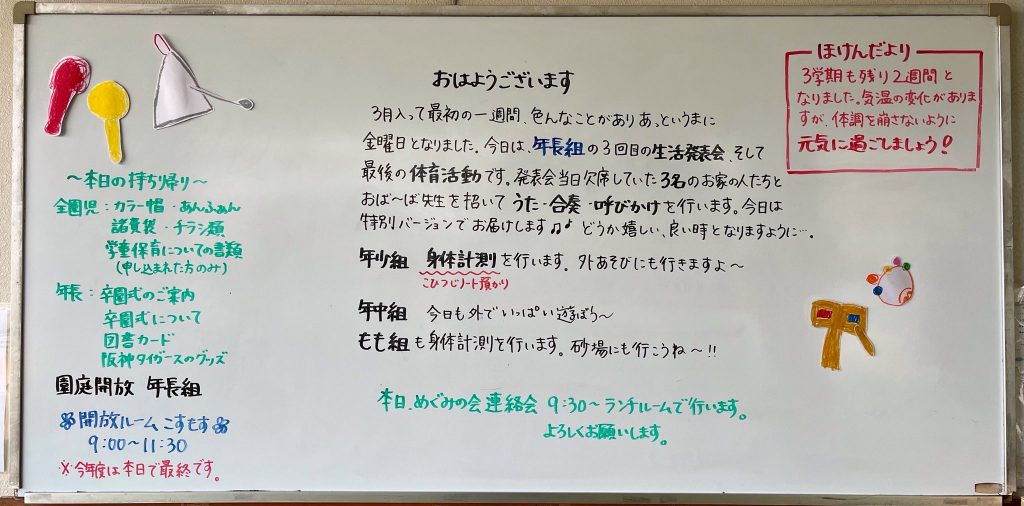 おはようございます
3月入って最初の一週間、色んなことがありあっというまに
金曜日となりました。今日は、年長組の3回目の生活発表会、そして
最後の体育活動です。発表会当日欠席していた3名のお家の人たちと
おば〜ば先生を招いてうた・合奏・呼びかけを行います。今日は
特別バージョンでお届けします♫♪どうか嬉しい、良い時となりますように…。
年少組 身体計測を行います。外あそびにも行きますよ〜
こひつじノート預かり
年中組 今日も外でいっぱい遊ぼう〜
もも組も身体計測を行います。砂場にも行こうね〜!!
本日、めぐみの会連絡会 9:30〜ランチルームで行います。
よろしくお願いします。
ほけんだより
3学期も残り2週間と
なりました。気温の変化がありま
すが、体調を崩さないように
元気に過ごしましょう!
〜本日の持ち帰り〜
全園児:カラー帽・あんふぁん
諸費袋・チラシ類
学童保育についての書類
(申し込まれた方のみ)
年長:卒園式のご案内
卒園式について
図書カード
阪神タイガースのグッズ
園庭開放 年長組
開放ルーム こすもす
9:00〜11:30
※今年度は本日で最終です。